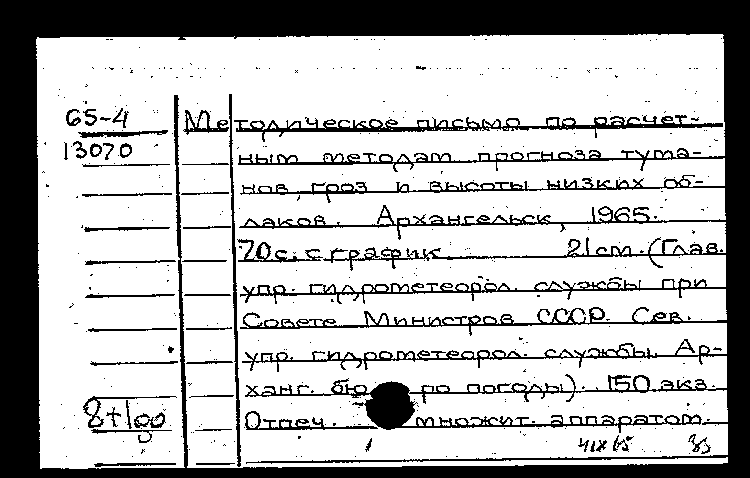 65-4
13070
Методическое письмо по расчет-
ным методам прогноза тума-
нов, гроз и высоты низких об-
лаков. Архангельск, 1965.
70 с. с график. 21 см. (Глав.
упр. гидрометеорол. службы при
Совете Министров СССР. Сев.
упр. гидрометеорол. службы. Ар-
ханг. бюро погоды). 150 экз.
Отпеч. множит. аппаратом.
8+100